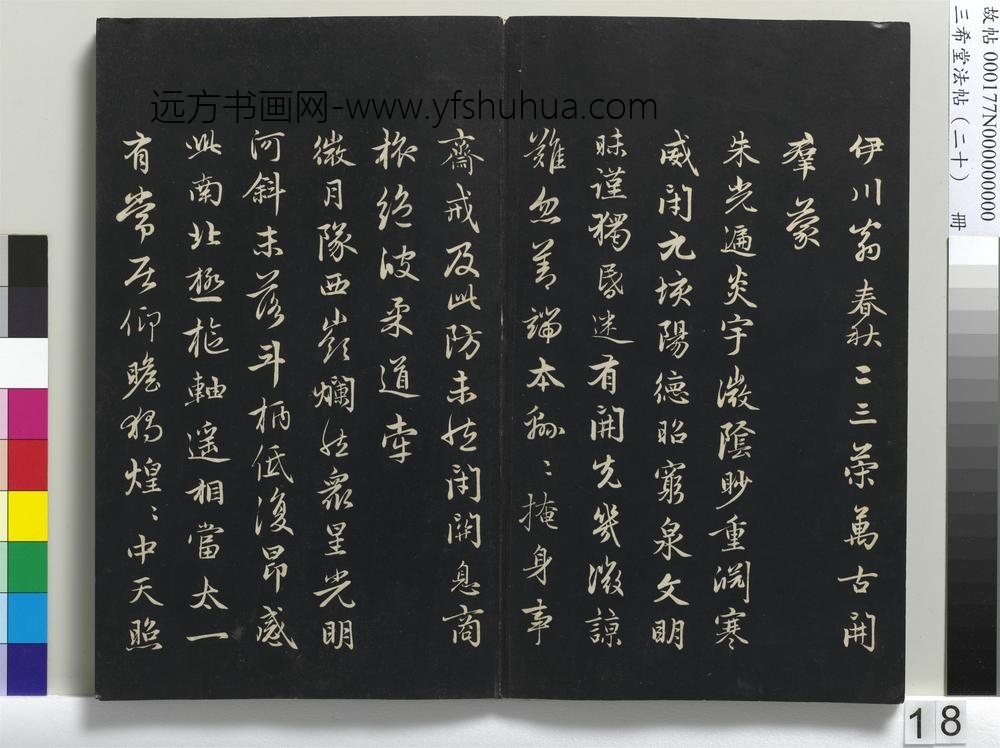 伊川翁春秋二三策萬古開
羣蒙
朱光遍炎宇微陰眇重淵寒
威閉九垓陽德昭窮泉文明
昧謹獨昏迷有開先幾微諒
難忽善端本綿〻掩身事
齋戒及此防未然閉關息商
旅絕彼柔道牽
微月隊西嶺爛然衆星光明
河斜未落斗柄低復昂感
此南北極樞軸遥相當太一
有常居仰瞻獨煌〻中天照
远方书画网-www.yfshuhua.com
故帖 000177N000000000
三希堂法帖（二十） 冊
18